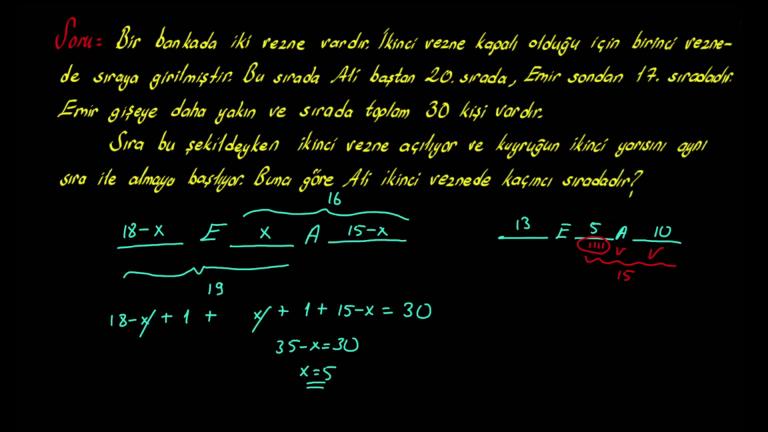 Soru= Bir bankada iki vezne vardır. İkinci vezne kapalı olduğu için birinci vezne-
de sıraya girilmiştir. Bu sırada Ali baştan 20. sırada, Emir sondan 17. sıradadır.
Emir gişeye daha yakın ve sırada toplam 30 kişi vardır.
Sıra bu şekildeyken ikinci vezne açılıyor ve kuyruğun ikinci yarısını aynı
sıra ile almaya başlıyor. Buna göre Ali ikinci veznede kaçıncı sıradadır?
16
18-x E x A 15-x
19
18-x + 1 + x + 1 + 15-x = 30
35-x=30
x=5
13 E 5 A 10
15